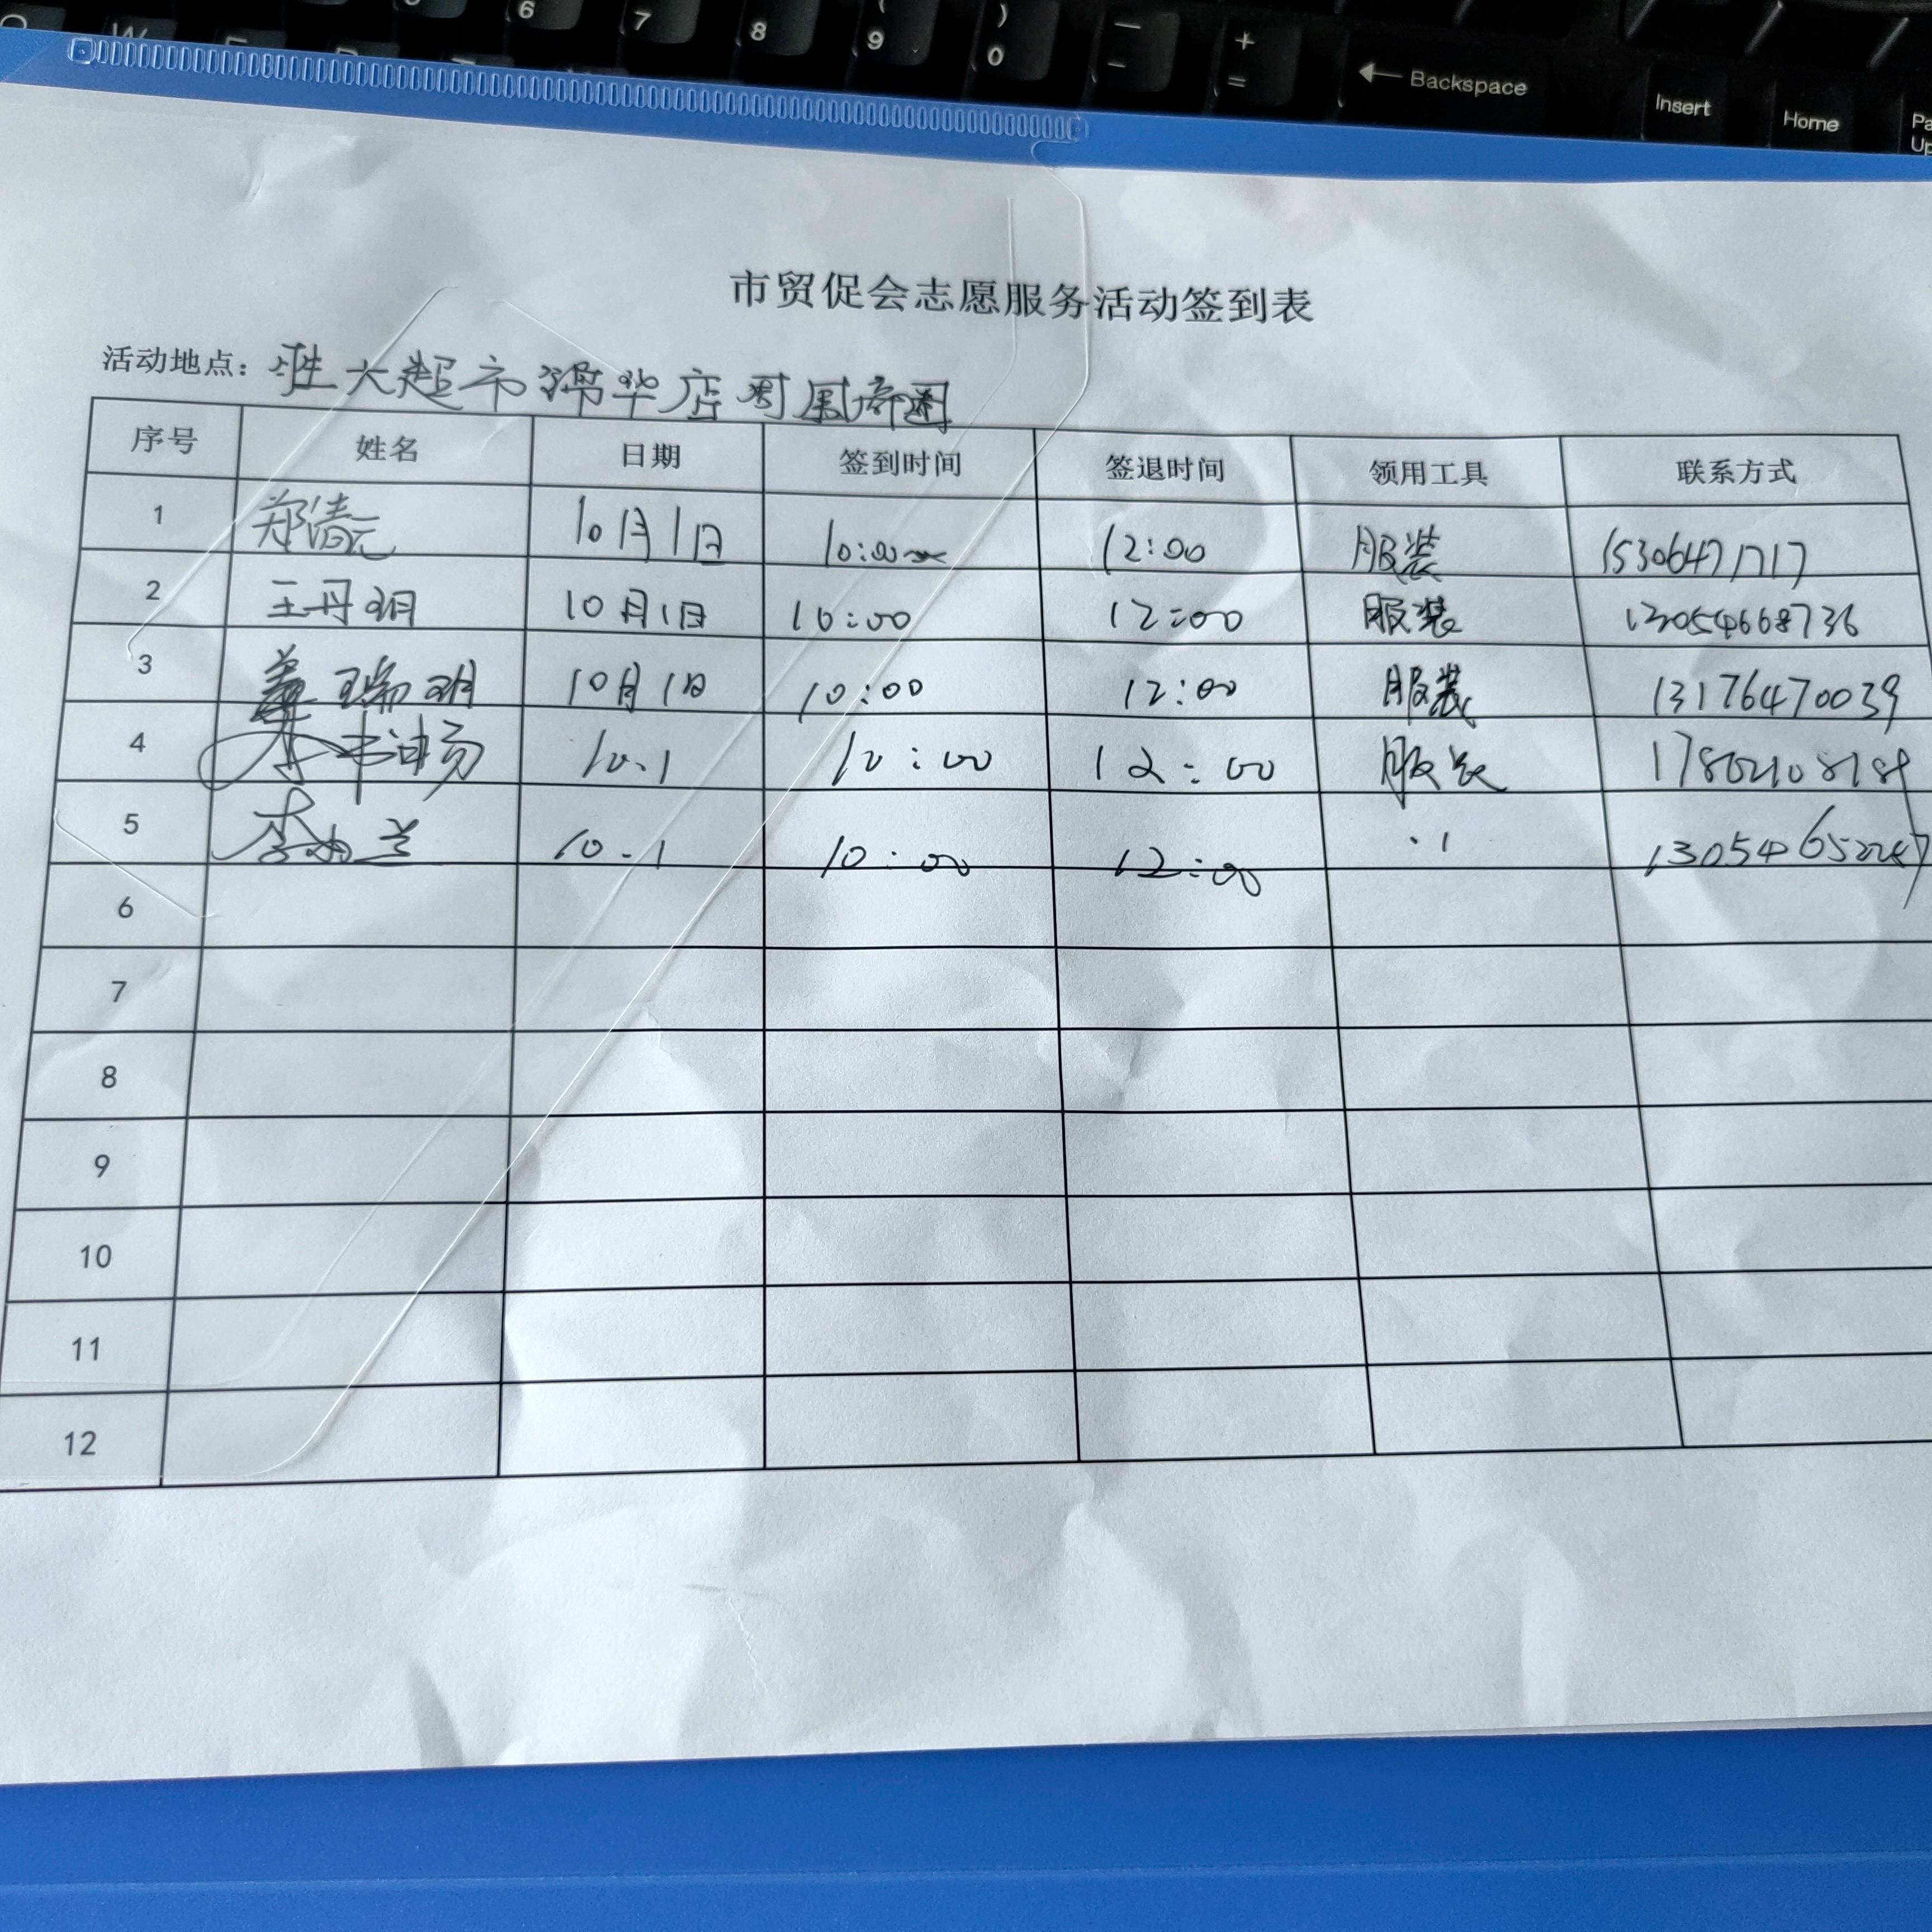 6 7 8 ( 9 ) 0 — - + = ← Backspace Insert Home
市贸促会志愿服务活动签到表
活动地点：胜大超市锦华店周围商圈
序号 姓名 日期 签到时间 签退时间 领用工具 联系方式
1 郑清元 10月1日 10:00 12:00 服装 15306471717
2 王丹玥 10月1日 10:00 12:00 服装 13054668736
3 姜瑞玥 10月1日 10:00 12:00 服装 13176470039
4 10.1 10:00 12:00 服装
5 李 兰 10.1 10:00 12:00 ·1
6
7
8
9
10
11
12